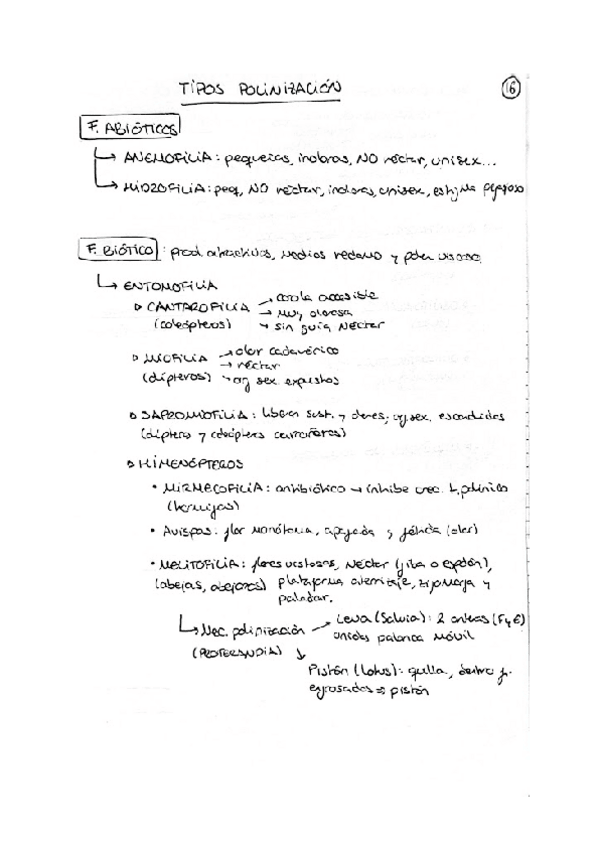 TIPOS POLINIZACIÓN
16
F. ABIÓTICOS
ANEMOFILIA: pequeñas, inoloras, NO néctar, unisex...
HIDROFILIA: peq, NO néctar, inoloras, unisex, estigma pegajoso
F. BIÓTICO: prod. atractivos, medios reclamo y polen viscoso
ENTOMOFILIA
CANTAROFILIA → corola accesible
(coleópteros) → muy olorosa
→ sin guía néctar
MIOFILIA → olor cadavérico
→ néctar
(dípteros) → org sex expuestos
SAPROMIOFILIA: liberan sust. y olores; org. sex. escondidos
(dípteros y coleópteros carroñeros)
HIMENÓPTEROS
• MIRMECOFILIA: antibiótico → inhibe crec. t. polínico
(hormigas)
• Avispas: flor monótona, apagada y fétida (olor)
• MELITOFILIA: flores vistosas, néctar (giba o espolón),
(abejas, abejorros) plataforma aterrizaje, zigomorfa y
paladar.
Mec. polinización → Leva (Salvia): 2 anteras (F y E)
unidas palanca móvil
(PROTERANDIA)
Pistón (Lotus): quilla, dentro
engrosados ⇒ pistón